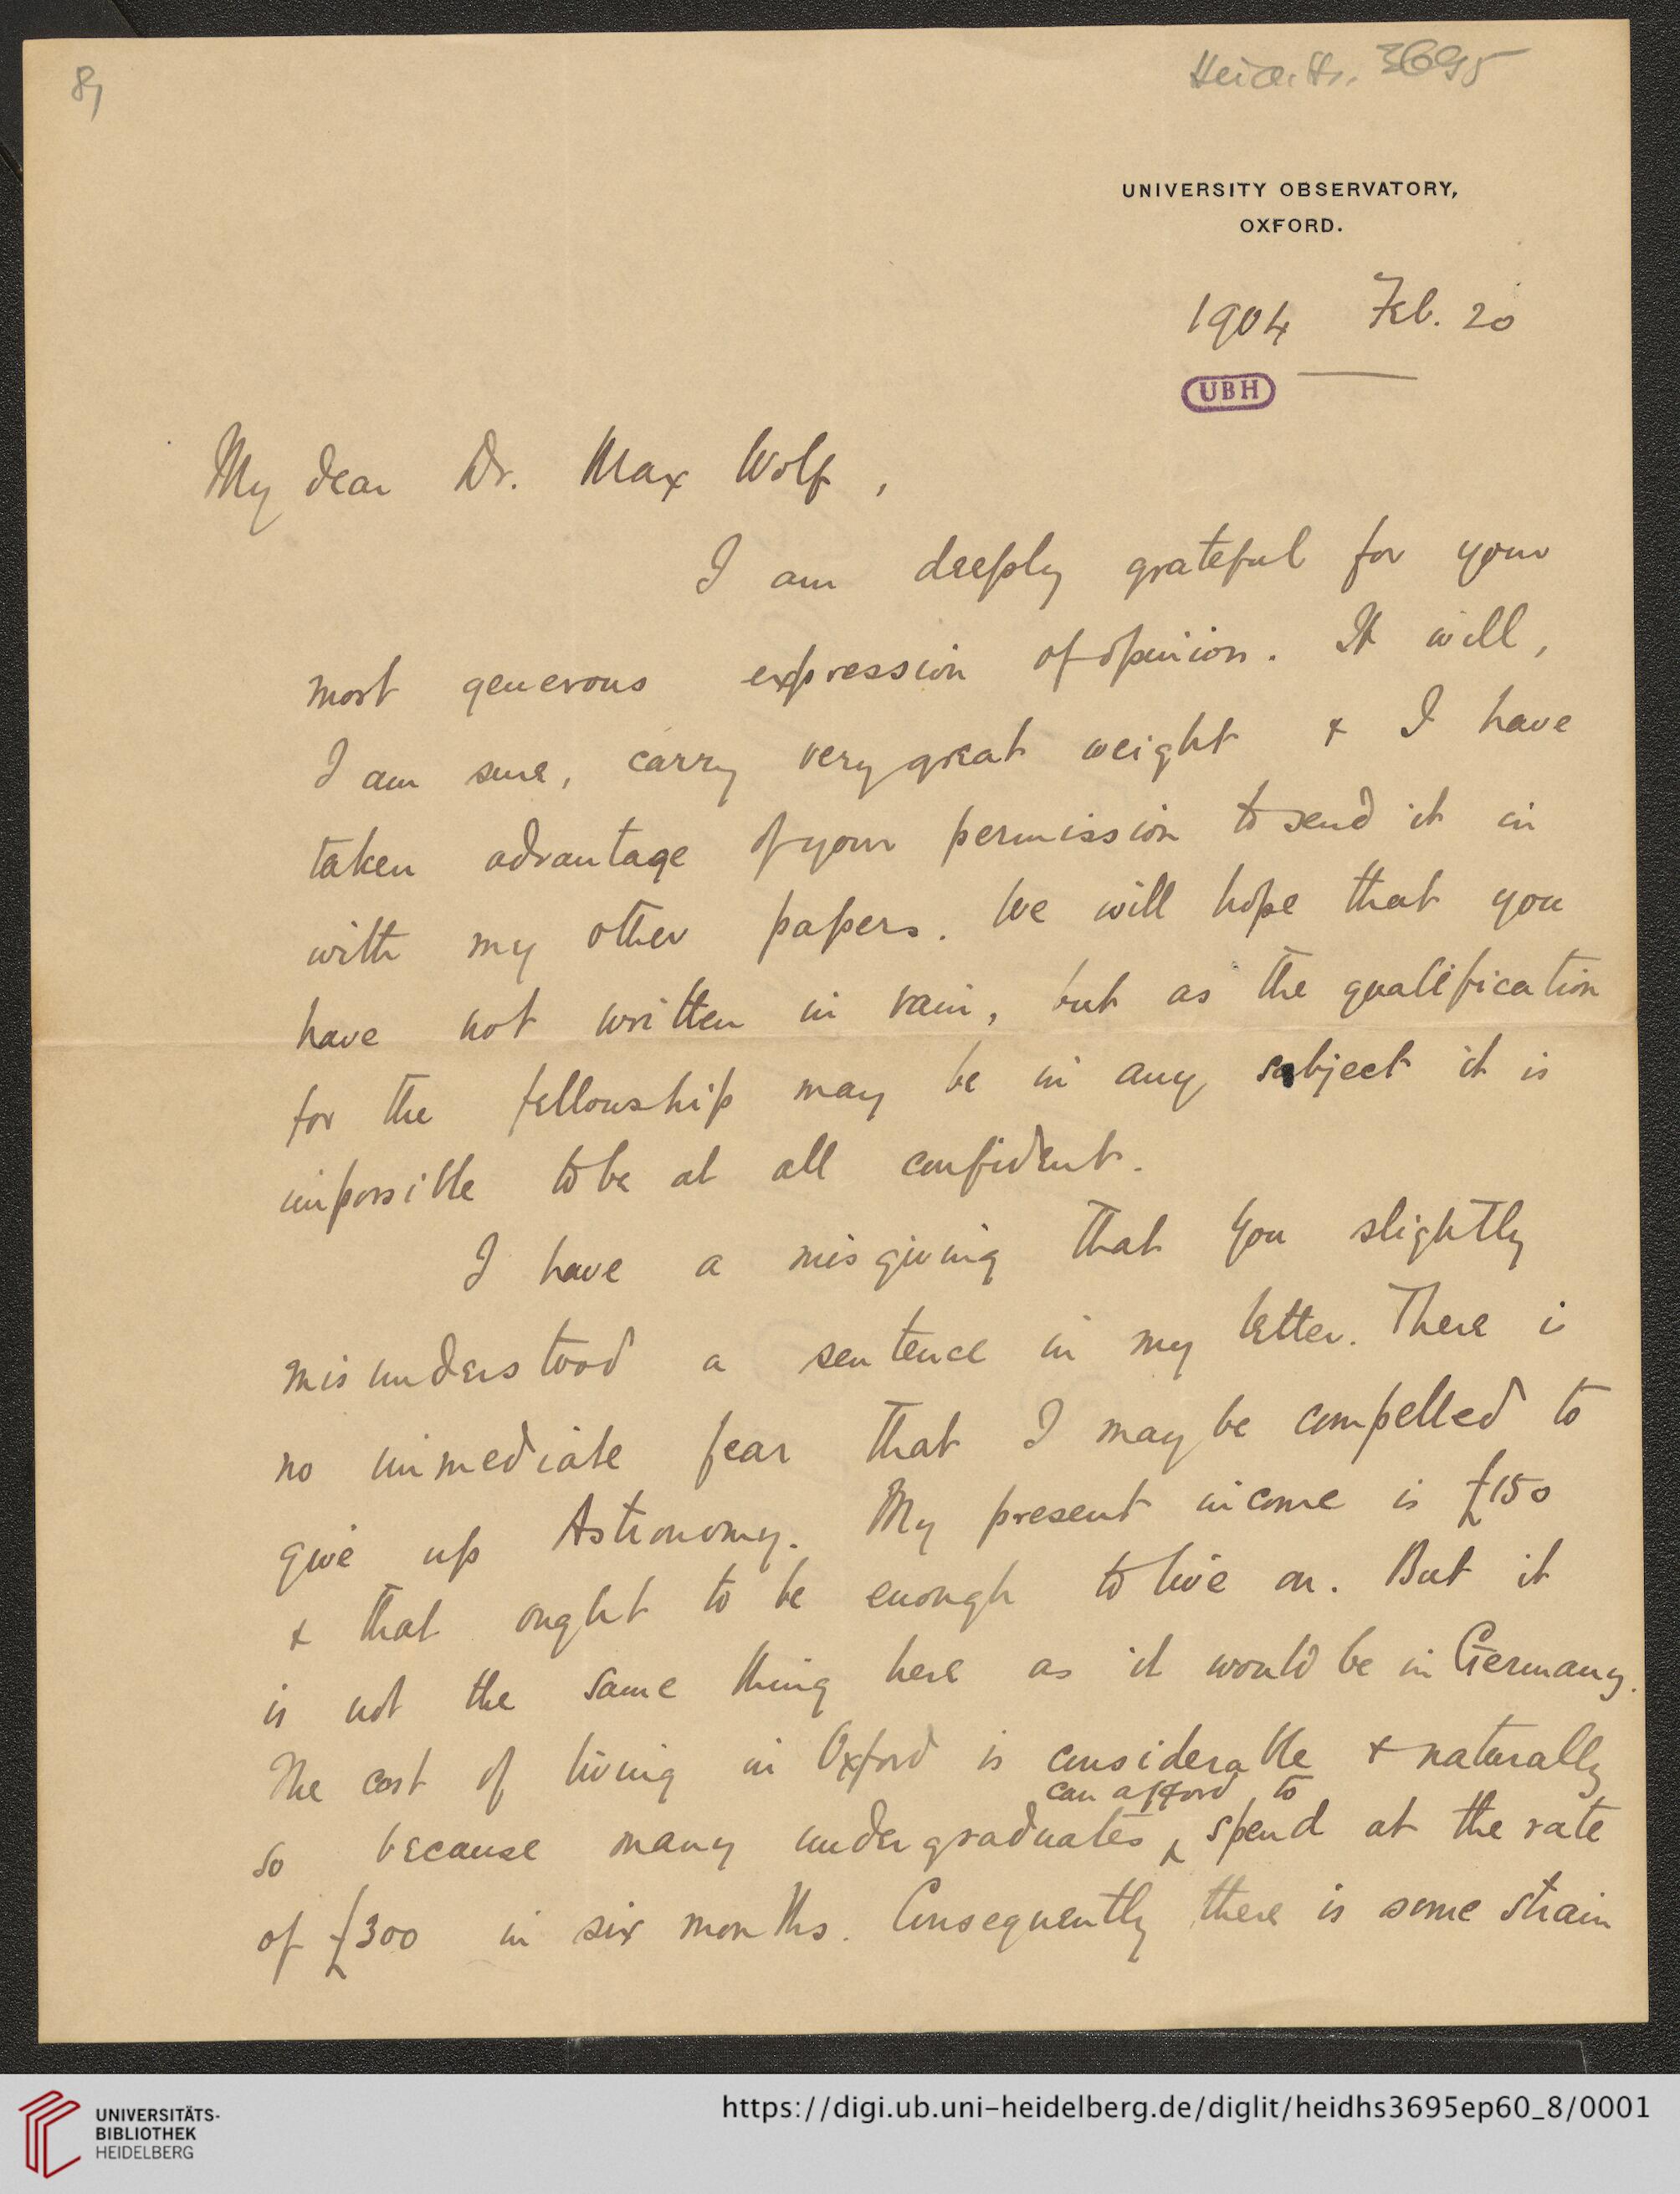 8,
Heid. Hs. 3695
UNIVERSITY OBSERVATORY,
OXFORD.
1904 Feb. 20
UBH
My dear Dr. Max Wolf,
I am deeply grateful for your
most generous expression of opinion. It will,
I am sure, carry very great weight & I have
taken advantage of your permission to send it in
with my other papers. We will hope that you
have not written in vain, but as the qualification
for the fellowship may be in any subject it is
impossible to be at all confident.
I have a misgiving that you slightly
misunderstood a sentence in my letter. There is
no immediate fear that I may be compelled to
give up Astronomy. My present income is £150
& that ought to be enough to live on. But it
is not the same thing here as it would be in Germany.
The cost of living in Oxford is considerable & naturally
can afford to
so because many undergraduates ‸ spend at the rate
of £300 in six months. Consequently there is some strain
UNIVERSITÄTS-
BIBLIOTHEK
HEIDELBERG
https://digi.ub.uni-heidelberg.de/diglit/heidhs3695ep60_8/0001